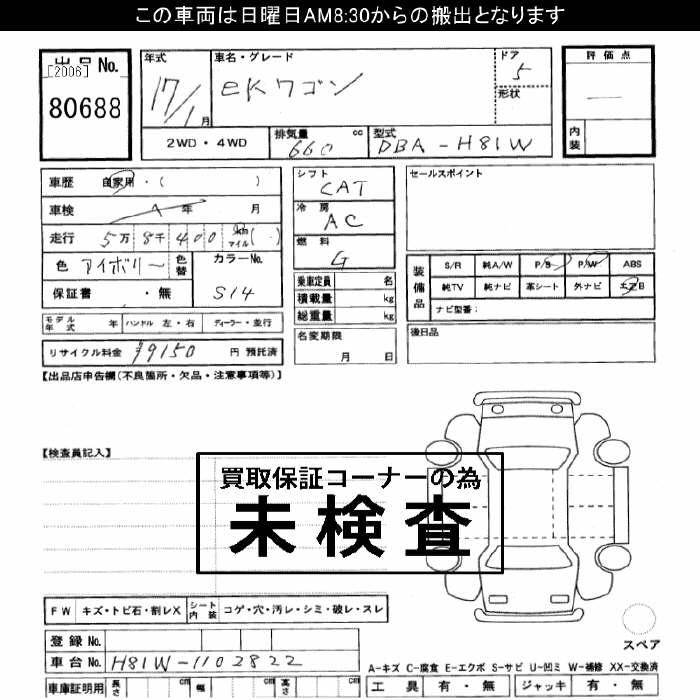 この車両は日曜日AM8:30からの搬出となります
出品No.
[2006]
80688
年式
17/1月
車名・グレード
eKワゴン
ドア
5
形状
評価点
—
内装
2WD・4WD
排気量 cc
660
型式
DBA-H81W
車歴 自家用・( )
車検 年 月
走行 5万8千400 km マイル( )
色 アイボリー 色替 カラーNo. S14
保証書 ・無
モデル年式 年 ハンドル 左・右 ディーラー・並行
リサイクル料金 ¥9150 円 預託済
シフト
CAT
冷房
AC
燃料
G
乗車定員 名
積載量 kg
総重量 kg
名変期限
月 日
セールスポイント
装備品
S/R 純A/W P/S P/W ABS
純TV 純ナビ 革シート 外ナビ エアB
ナビ型番:
後日品
【出品店申告欄(不良箇所・欠品・注意事項等)】
【検査員記入】
買取保証コーナーの為
未検査
FW キズ・トビ石・割レX シート内装 コゲ・穴・汚レ・シミ・破レ・スレ
登録No.
車台No. H81W-1102822
車庫証明用 長さ cm 幅 cm 高さ cm
スペア
A-キズ C-腐食 E-エクボ S-サビ U-凹ミ W-補修 XX-交換済
工具 有・無 ジャッキ 有・無